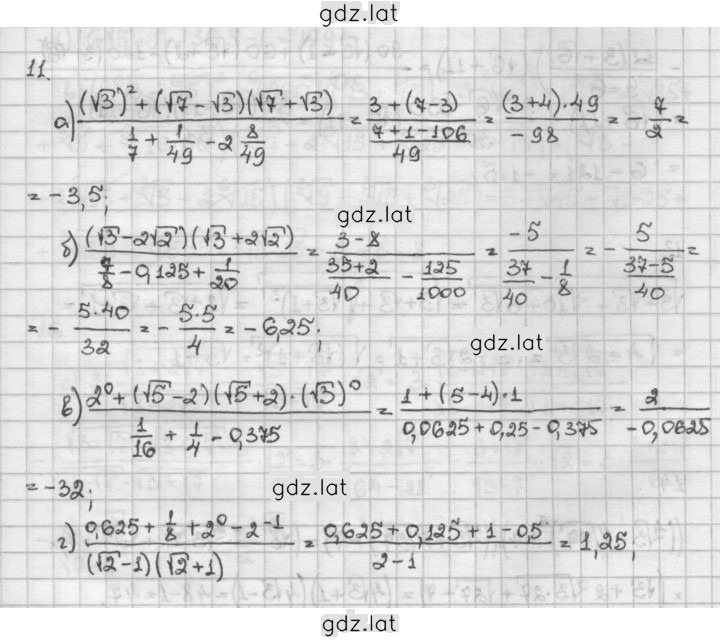 gdz.lat
11.
а) ((√3)² + (√7 - √3)(√7 + √3))/(1/7 + 1/49 - 2 8/49) = (3 + (7-3))/((7+1-106)/49) = ((3+4)·49)/(-98) = - 7/2 =
= -3,5;
gdz.lat
б) ((√3 - 2√2)(√3 + 2√2))/(7/8 - 0,125 + 1/20) = (3-8)/((35+2)/40 - 125/1000) = (-5)/(37/40 - 1/8) = - 5/((37-5)/40) =
= - (5·40)/32 = - (5·5)/4 = - 6,25;
gdz.lat
в) (2⁰ + (√5 - 2)(√5 + 2)·(√3)⁰)/(1/16 + 1/4 - 0,375) = (1 + (5-4)·1)/(0,0625 + 0,25 - 0,375) = 2/(-0,0625)
= -32;
gdz.lat
г) (0,625 + 1/8 + 2⁰ - 2⁻¹)/((√2 - 1)(√2 + 1)) = (0,625 + 0,125 + 1 - 0,5)/(2-1) = 1,25;
gdz.lat